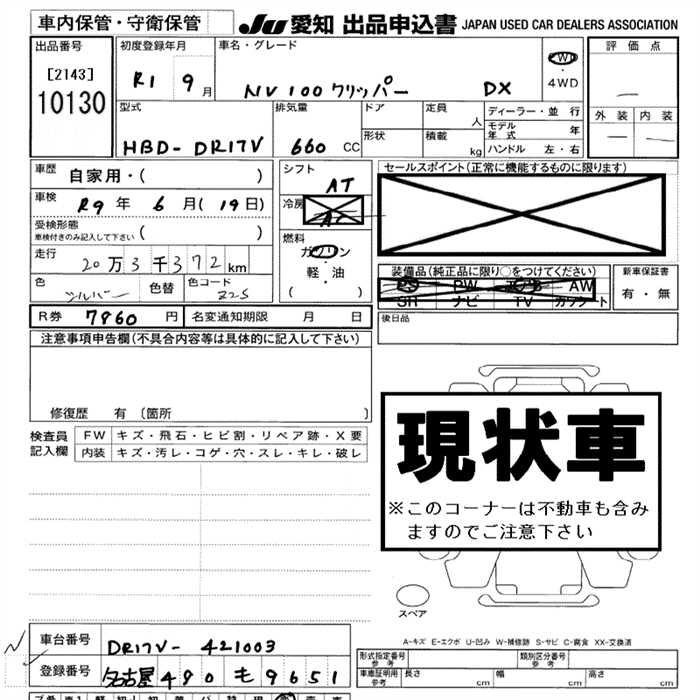 車内保管・守衛保管
JU 愛知 出品申込書 JAPAN USED CAR DEALERS ASSOCIATION
出品番号
[2143]
10130
初度登録年月
R1 9月
車名・グレード
NV100クリッパー DX
2WD
・
4WD
評価点
外装 内装
型式
HBD-DR17V
排気量
660 CC
ドア
形状
定員 人
積載 kg
ディーラー・並行
モデル年式 年
ハンドル 左・右
車歴 自家用・( )
車検 R9年 6月(19日)
受検形態
車検付きのみ記入して下さい ( )
走行 20万3千372km
色 シルバー 色替 色コード Z2S
シフト AT
冷房 AC
燃料
ガソリン
・
軽・油
( )
セールスポイント(正常に機能するものに限ります)
装備品(純正品に限り○をつけてください)
PS PW エアB AW
SR ナビ TV カワシート
新車保証書
有・無
R券 7860円
名変通知期限 月 日
後日品
注意事項申告欄(不具合内容等は具体的に記入して下さい)
修復歴 有〔箇所 〕
検査員記入欄
FW キズ・飛石・ヒビ割・リペア跡・X要
内装 キズ・汚レ・コゲ・穴・スレ・キレ・破レ
現状車
※このコーナーは不動車も含み
ますのでご注意下さい
スペア
A-キズ E-エクボ U-凹み W-補修跡 S-サビ C-腐食 XX-交換済
車台番号 DR17V-421003
登録番号 名古屋 480 も 9651
形式指定番号
参考
類別区分番号
参考
車庫証明用
参考
長さ cm
幅 cm
高さ cm